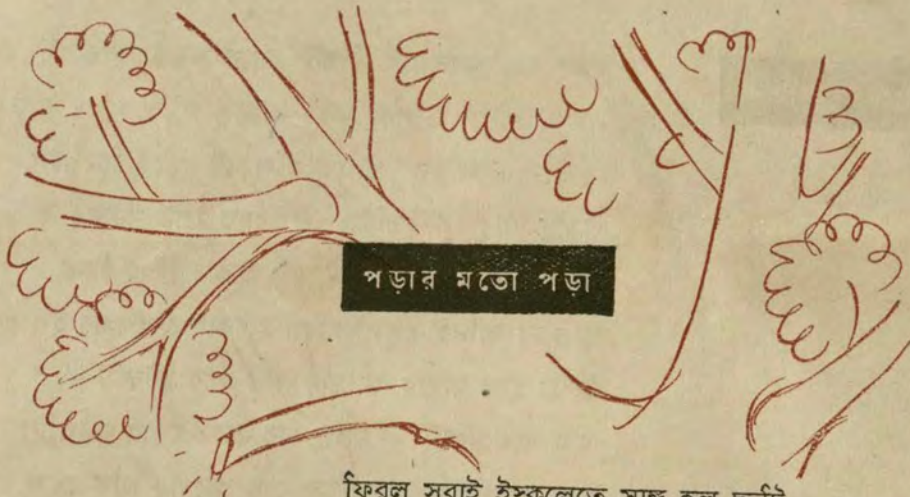 পড়ার মতো পড়া
ফিরল সবাই ইস্কুলেতে সাঙ্গ হল